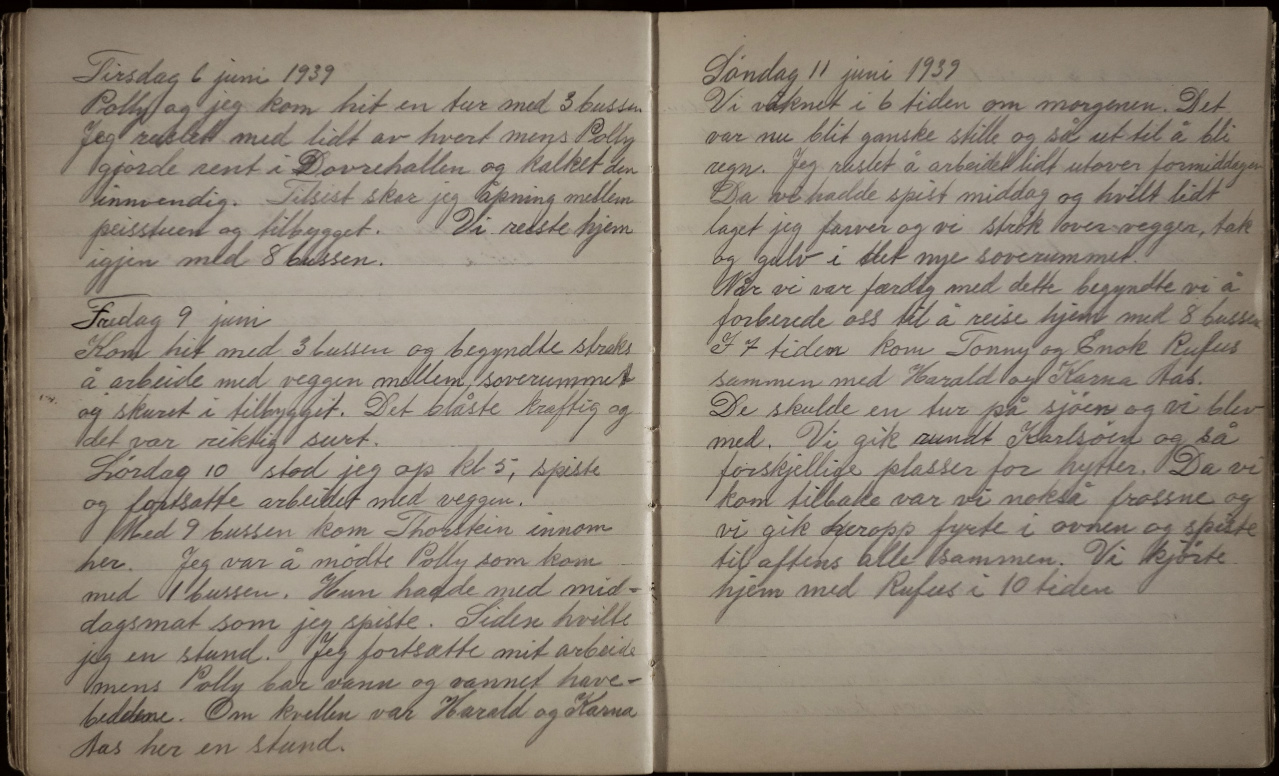 Tirsdag 6 juni 1939
Polly og jeg kom hit en tur med 3 bussen
Jeg ruslet med lidt av hvert mens Polly
gjorde rent i Dovrehallen og kalket den
innvendig. Tilsist skar jeg åpning mellem
peisstuen og tilbygget. Vi reiste hjem
igjen med 8 bussen.
Fredag 9 juni
Kom hit med 3 bussen og begyndte straks
å arbeide med veggen mellem soverummet
og skuret i tilbygget. Det blåste kraftig og
det var riktig surt.
Lørdag 10 stod jeg op kl 5, spiste
og fortsatte arbeidet med veggen.
Med 9 bussen kom Thorstein innom
her. Jeg var å mødte Polly som kom
med 1 bussen. Hun hadde med mid-
dagsmat som jeg spiste. Siden hvilte
jeg en stund. Jeg fortsætte mit arbeide
mens Polly bar vann og vannet have-
beddene. Om kvellen var Harald og Karna
Aas her en stund.
Søndag 11 juni 1939
Vi våknet i 6 tiden om morgenen. Det
var nu blit ganske stille og så ut til å bli
regn. Jeg ruslet å arbeidet lidt utover formiddagen
Da vi hadde spist middag og hvilt lidt
laget jeg farver og vi strøk over vegger, tak
og gulv i det nye soverummet.
Når vi var færdig med dette begyndte vi å
forberede oss til å reise hjem med 8 bussen
I 7 tiden kom Tonny og Enok Rufus
sammen med Harald og Karna Aas.
De skulde en tur på sjøen og vi blev
med. Vi gik rundt Karlsøen og så
forskjellige plasser for hytter. Da vi
kom tilbake var vi nokså frossne og
vi gik heropp fyrte i ovnen og spiste
til aftens alle sammen. Vi kjørte
hjem med Rufus i 10 tiden